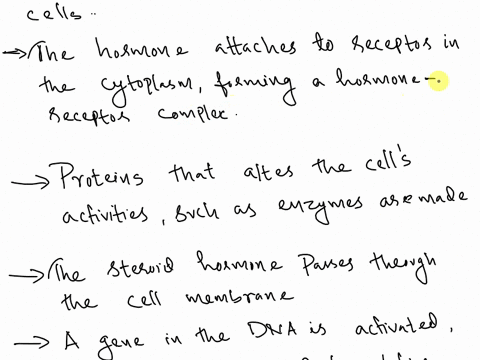 cells..
→ The hormone attaches to receptor in
the cytoplasm, forming a hormone-
receptor complex.
→ Proteins that alter the cell's
activities, such as enzymes are made
→ The steroid hormone Passes through
the cell membrane
→ A gene in the DNA is activated,